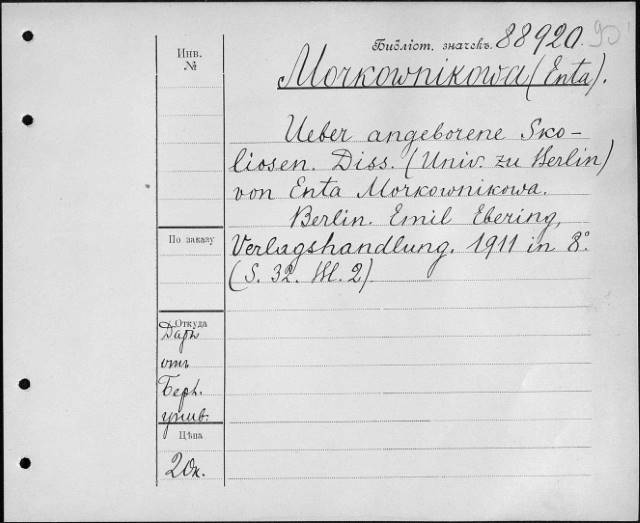 Инв.
№
Библіот. значекъ. 88920.
Morkownikowa (Enta).
Ueber angeborene Sko-
liosen. Diss. (Univ. zu Berlin)
von Enta Morkownikowa.
Berlin. Emil Ebering,
Verlagshandlung. 1911 in 8°.
(S. 32. Bl. 2)
По заказу
Откуда
Даръ
отъ
Берл.
унив.
Цѣна
20к.